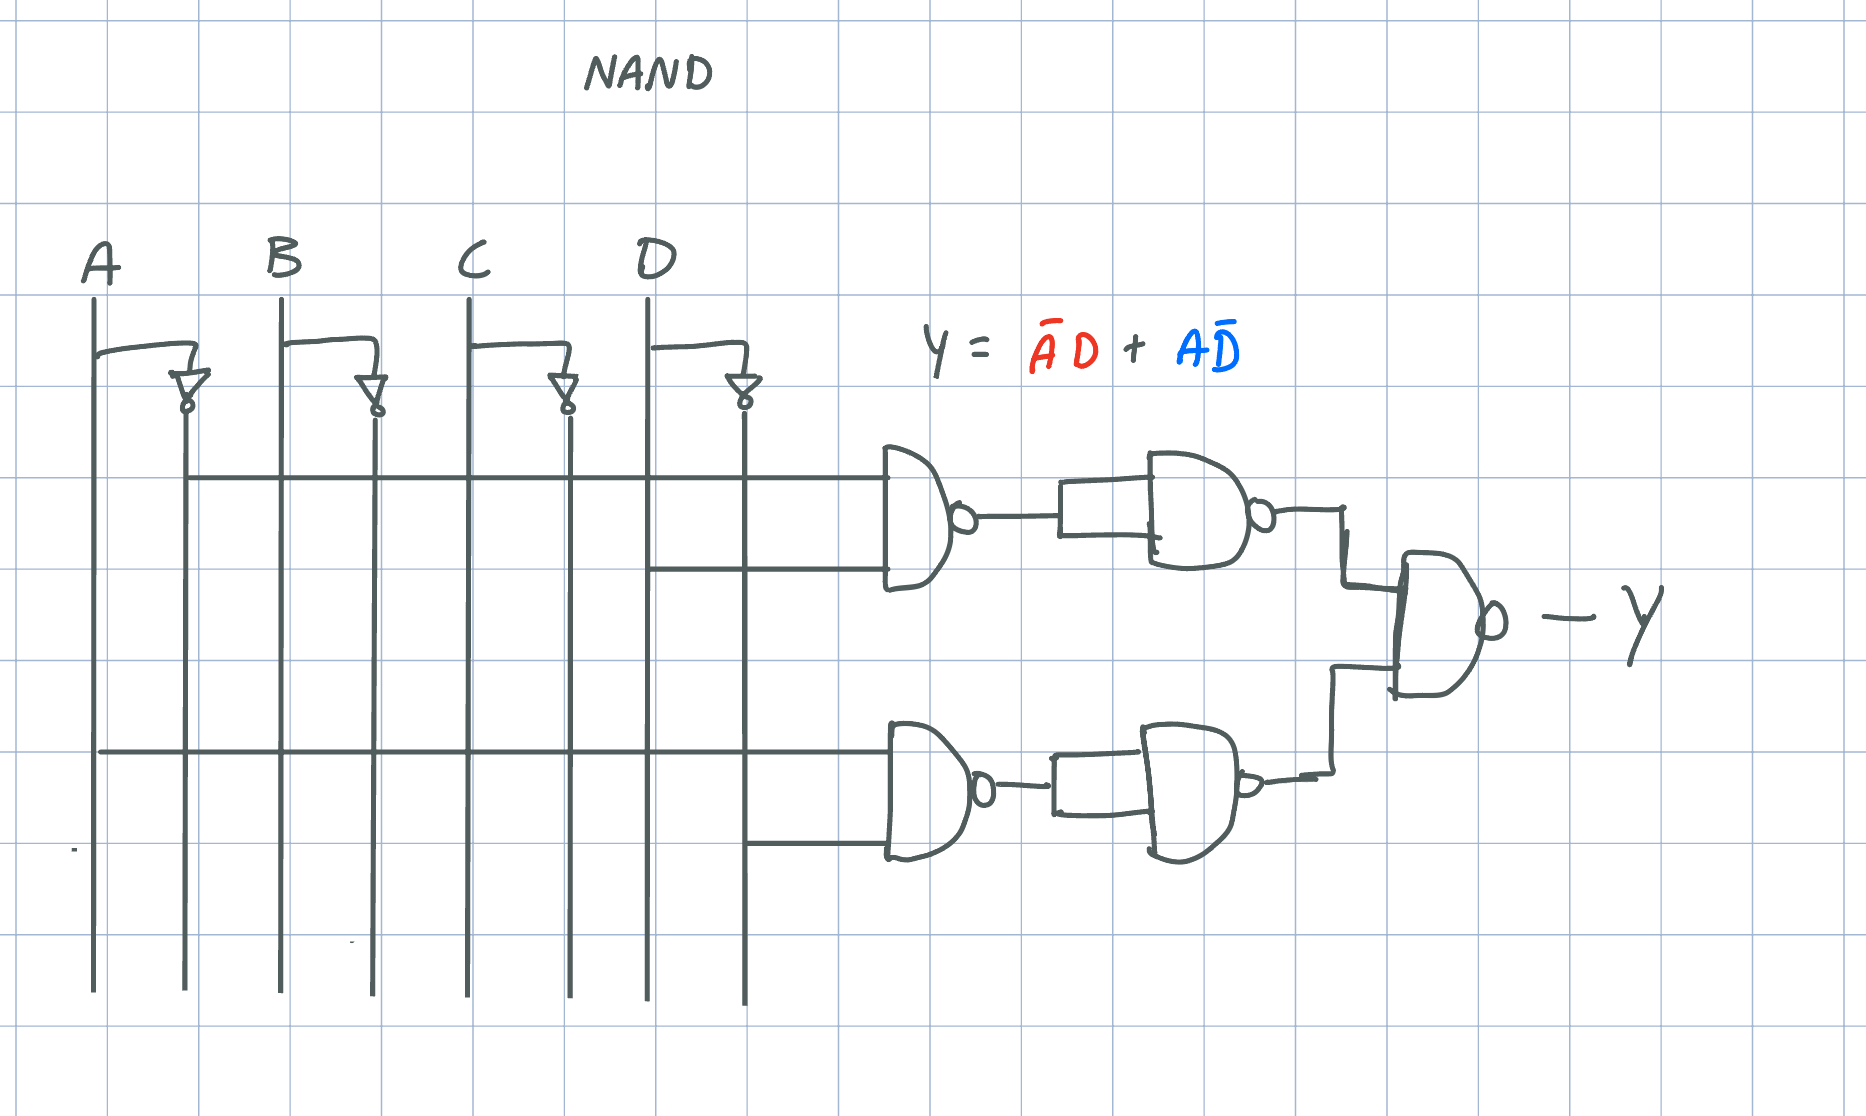 NAND
A B C D
Y = A̅D + AD̅
Y